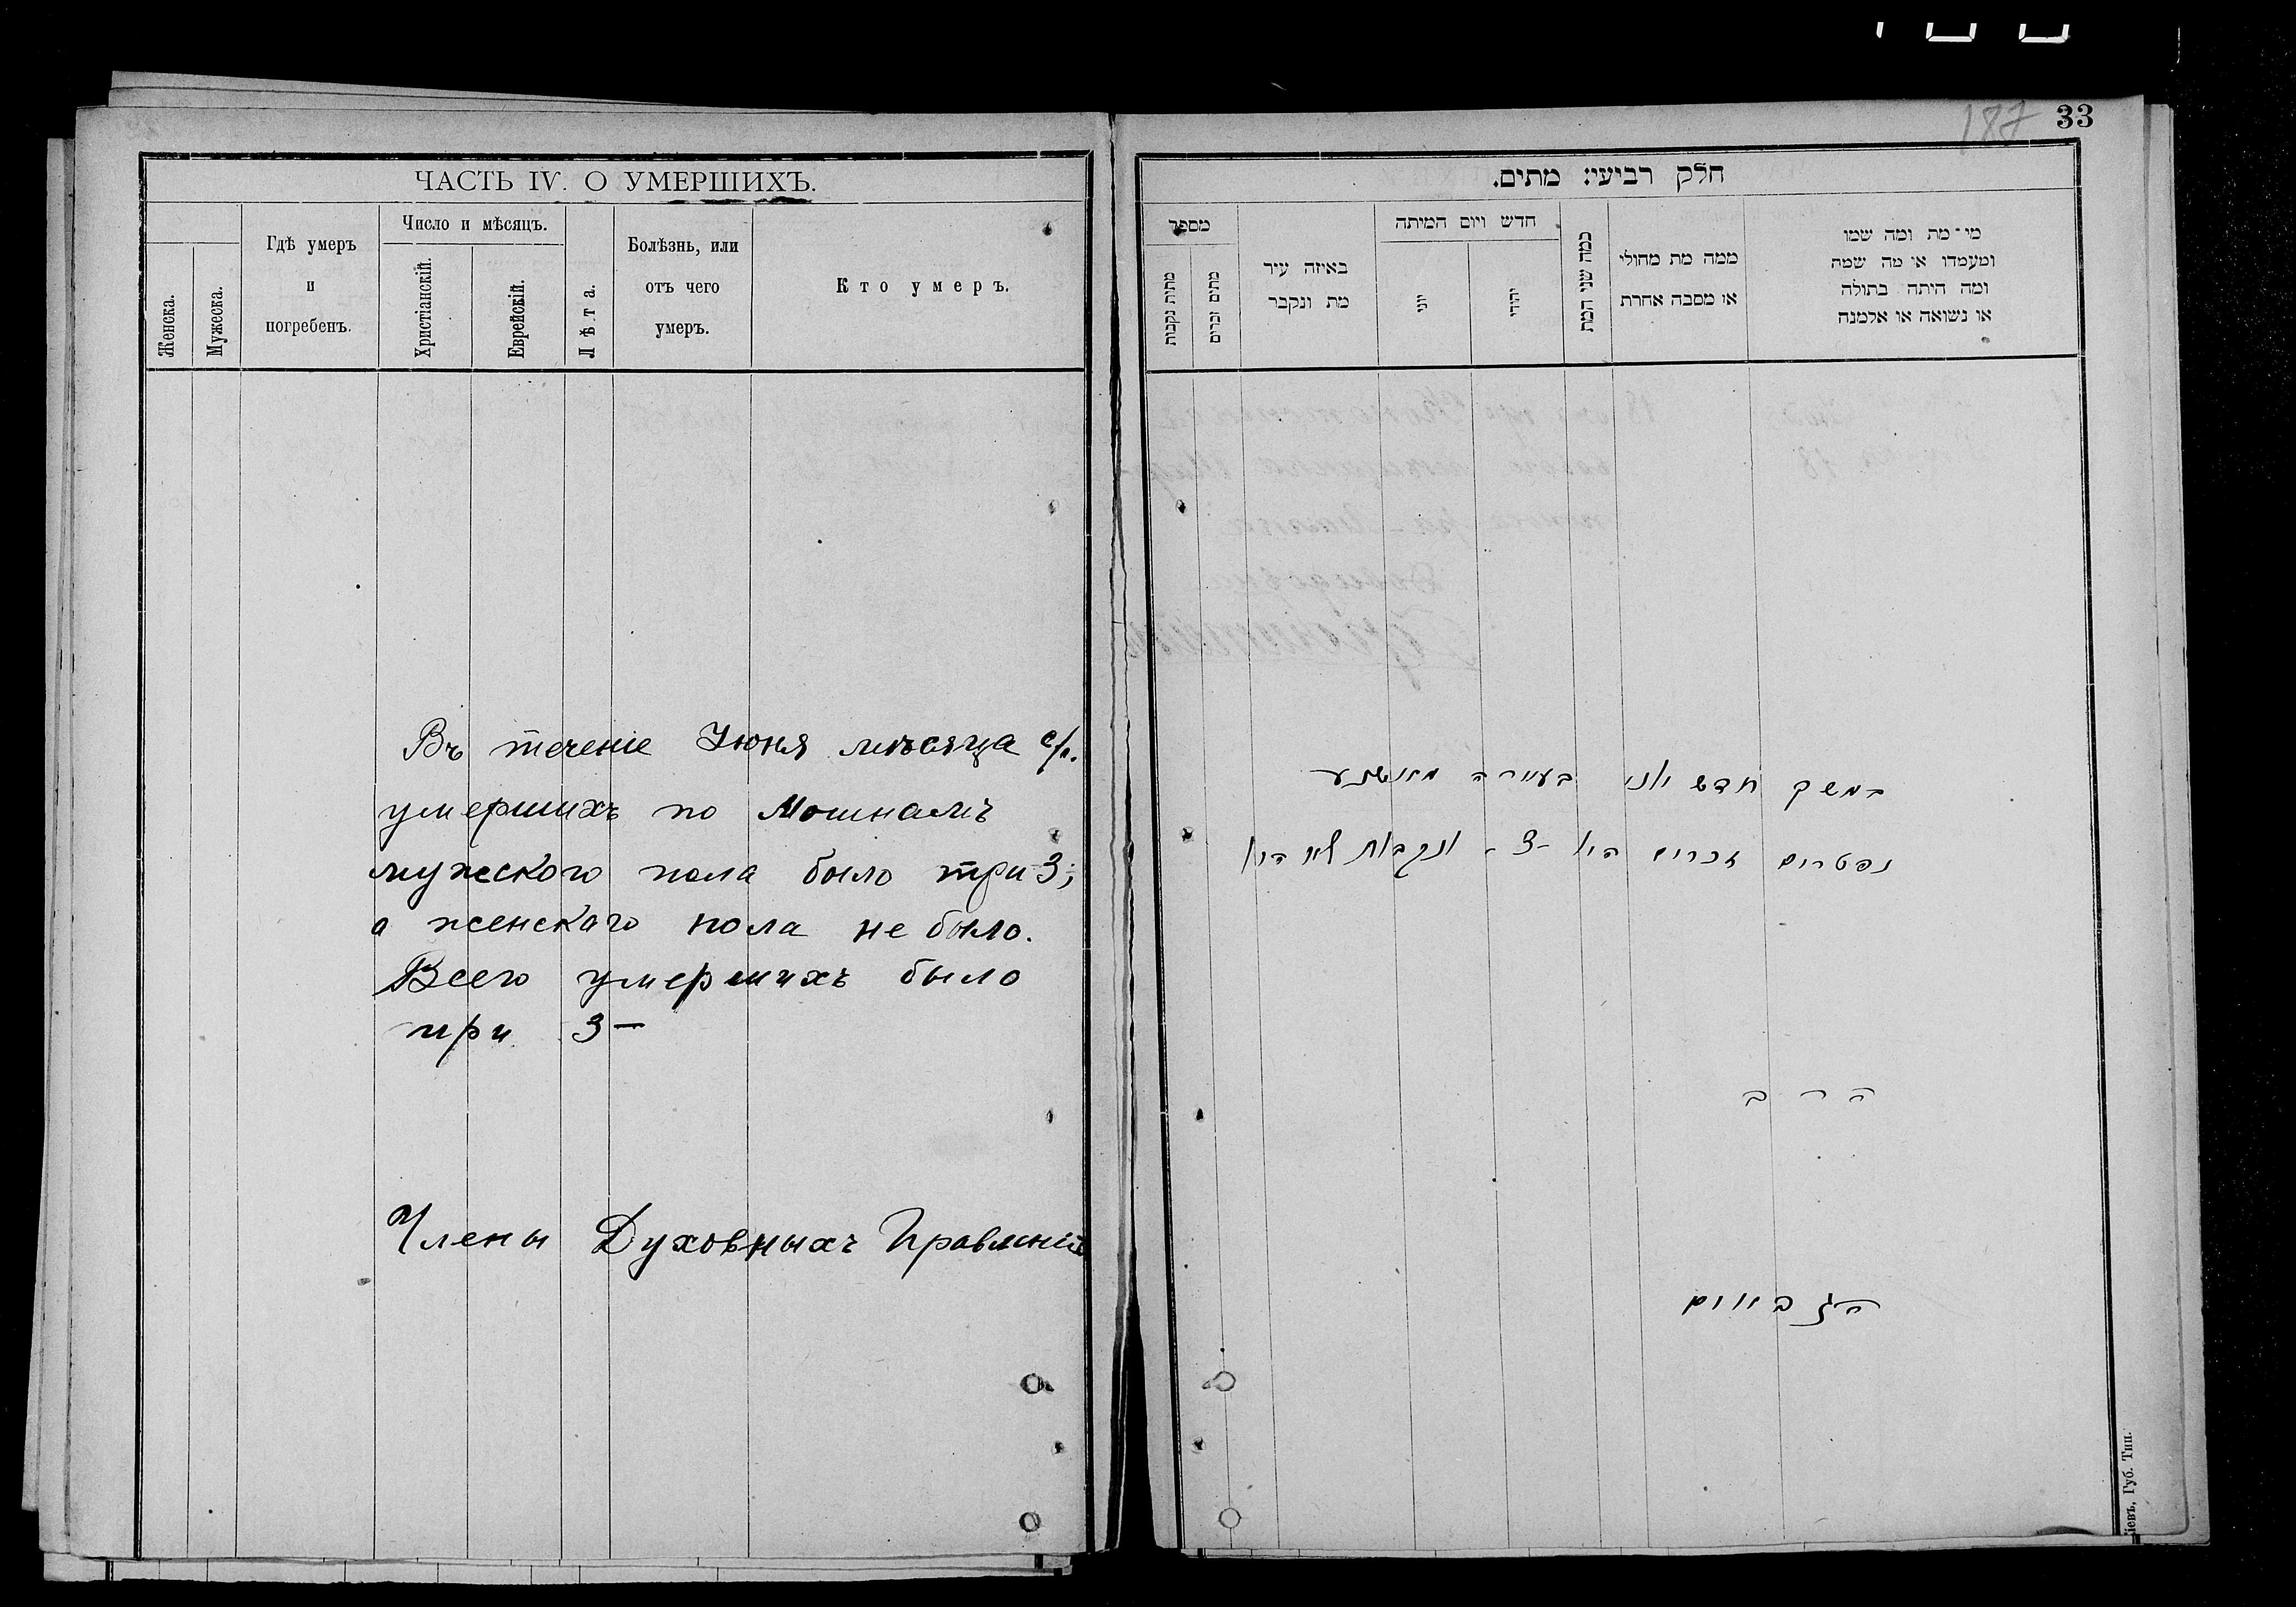 ЧАСТЬ IV. О УМЕРШИХЪ.
Женска.
Мужеска.
Гдѣ умеръ
и
погребенъ.
Число и мѣсяцъ.
Христіанскій.
Еврейскій.
Лѣта.
Болѣзнь, или
отъ чего
умеръ.
Кто умеръ.
Въ теченіе Іюня мѣсяца с/г.
умершихъ по Мошнамъ
мужеского пола было три 3;
а женскаго пола не было.
Всего умершихъ было
три 3 —
Члены Духовныхъ Правленій
187 33
חלק רביעי: מתים.
מספר
מתות נקבות
מתים זכרים
באיזה עיר
מת ונקבר
חדש ויום המיתה
יוני
יהודי
כמה שני המת
ממה מת מחולי
או מסבה אחרת
מי־מת ומה שמו
ומעמדו או מה שמה
ומה היתה בתולה
או נשואה או אלמנה
במשך חדש יוני בעיירה מאשנע
נפטרים זכרים היו -3- ונקבות לא היו
הרב
הגבאים
Губ. Тип.